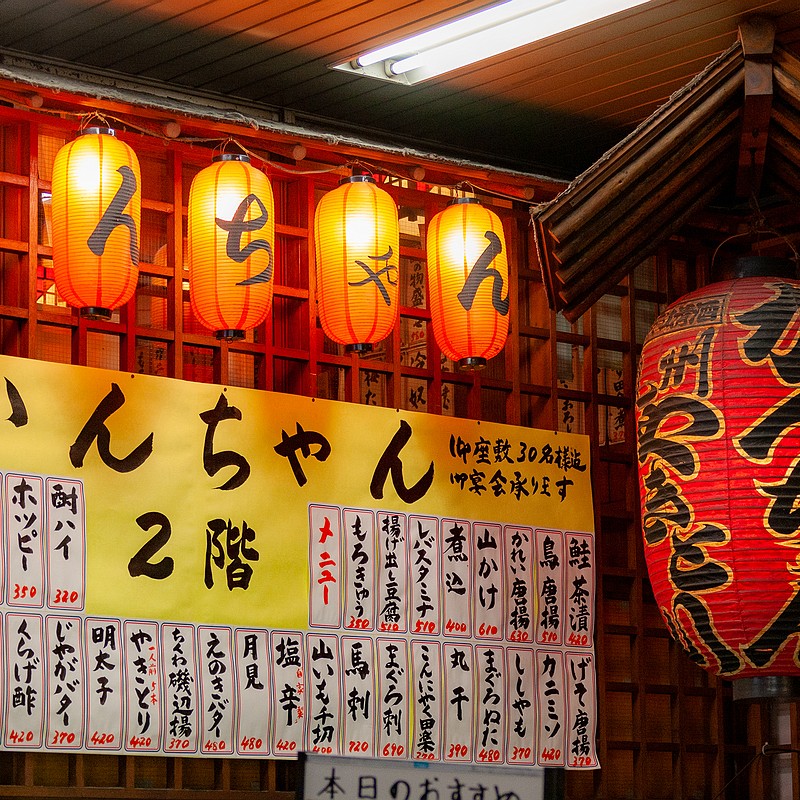 んちゃん
んちゃん
御座敷30名様迄
御宴会承ります
2階
酎ハイ 320
ホッピー 350
鮭茶漬 420
鳥唐揚 510
かれい唐揚 630
山かけ 610
煮込 400
レバスタミナ 510
揚げ出し豆腐 510
もろきゅう 350
メニュー
げそ唐揚 370
カニミソ 420
ししゃも 370
まぐろぬた 480
丸干 390
こんにゃく田楽
まぐろ刺 690
馬刺 720
山いも千切 400
塩辛 自家製 420
月見 480
えのきバター 480
ちくわ磯辺揚 370
やきとり 一人前 420
明太子 420
じゃがバター 370
くらげ酢 420
本日のおすすめ